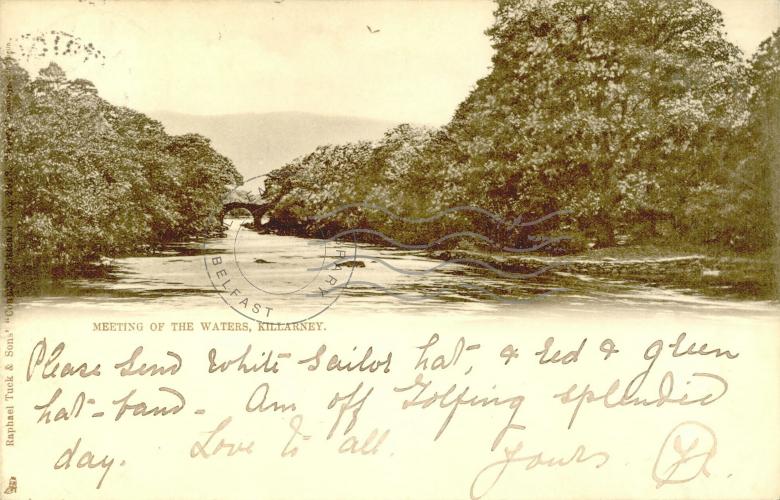 MEETING OF THE WATERS, KILLARNEY.
Please send White Sailor hat, & red & green
hat-band - Am off Golfing splendid
day. Love to all. Yours
BELFAST LIBRARY
Raphael Tuck & Sons'